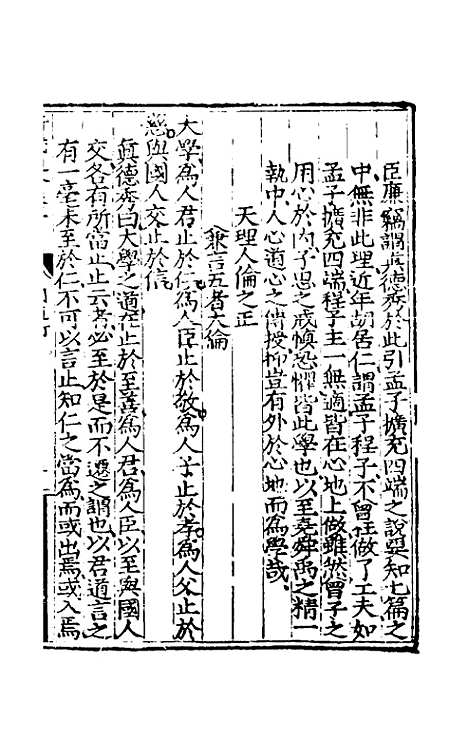 臣廉竊謂真德秀於此引孟子擴充四端之說要知七篇之
中無非此理近年胡居仁謂孟子程子不曾枉做了工夫如
孟子擴充四端程子主一無適皆在心地上做雖然曾子之
用心於內子思之戒慎恐懼皆此學也以至堯舜禹之精一
執中人心道心之傳授抑豈有外於心地而為學哉
天理人倫之正
兼言五者大倫
大學為人君止於仁為人臣止於敬為人子止於孝為人父止於
慈與國人交止於信
真德秀曰大學之道在止於至善為人君為人臣以至與國人
交各有所當止止云者必至於是而不遷之謂也以君道言之
有一毫未至於仁不可以言止知仁之當為而或出焉或入焉